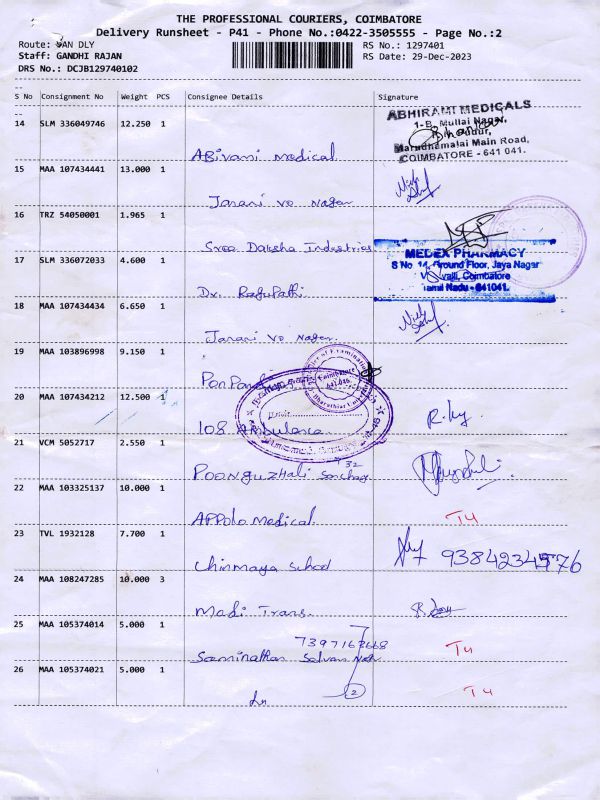 THE PROFESSIONAL COURIERS, COIMBATORE
Delivery Runsheet - P41 - Phone No.:0422-3505555 - Page No.:2
Route: VAN DLY
RS No.: 1297401
Staff: GANDHI RAJAN
RS Date: 29-Dec-2023
DRS No.: DCJB129740102
S No Consignment No Weight PCS Consignee Details Signature
14 SLM 336049746 12.250 1
ABHIRAMI MEDICALS
1-B, Mullai Nagar,
Maruthamalai Main Road,
COIMBATORE - 641 041.
Abivani medical
15 MAA 107434441 13.000 1
Janani vo Nagar
16 TRZ 54050001 1.965 1
Sree Daksha Industries
17 SLM 336072033 4.600 1
MEDEX PHARMACY
S No 14, Ground Floor, Jaya Nagar
Coimbatore
Tamil Nadu - 641041.
Dr. Ragupathi
18 MAA 107434434 6.650 1
Janani vo Nagar
19 MAA 103896998 9.150 1
Coimbatore
641 046
20 MAA 107434212 12.500 1
108 Ambulance
21 VCM 5052717 2.550 1
Poonguzhali
22 MAA 103325137 10.000 1
Appolo medical
T4
23 TVL 1932128 7.700 1
Chinmaya School
9384234576
24 MAA 108247285 10.000 3
Medi Trans.
25 MAA 105374014 5.000 1
Saminathan
T4
26 MAA 105374021 5.000 1
2
T4